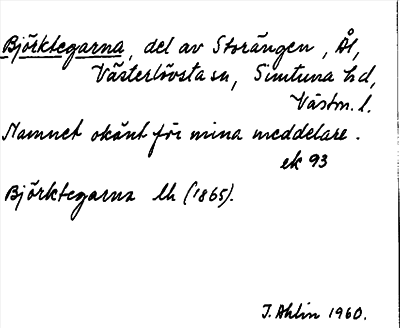 Björktegarna, del av Storängen, Ål,
Västerlövsta sn, Simtuna hd,
Västm. l.
Namnet okänt för mina meddelare.
ek 93
Björktegarna lh (1865).
J. Ahlin 1960.